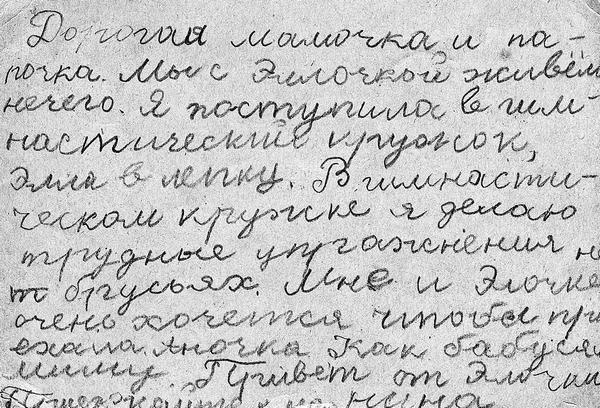 Дорогая мамочка и па-
почка. Мы с Эллочкой живём
нечего. Я поступила в гим-
настический кружок,
Элла в лепку. В гимнасти-
ческом кружке я делаю
трудные упражнения на
брусьях. Мне и Элочке
очень хочется чтобы при
ехала Яночка. Как бабуся
Привет от Элочки